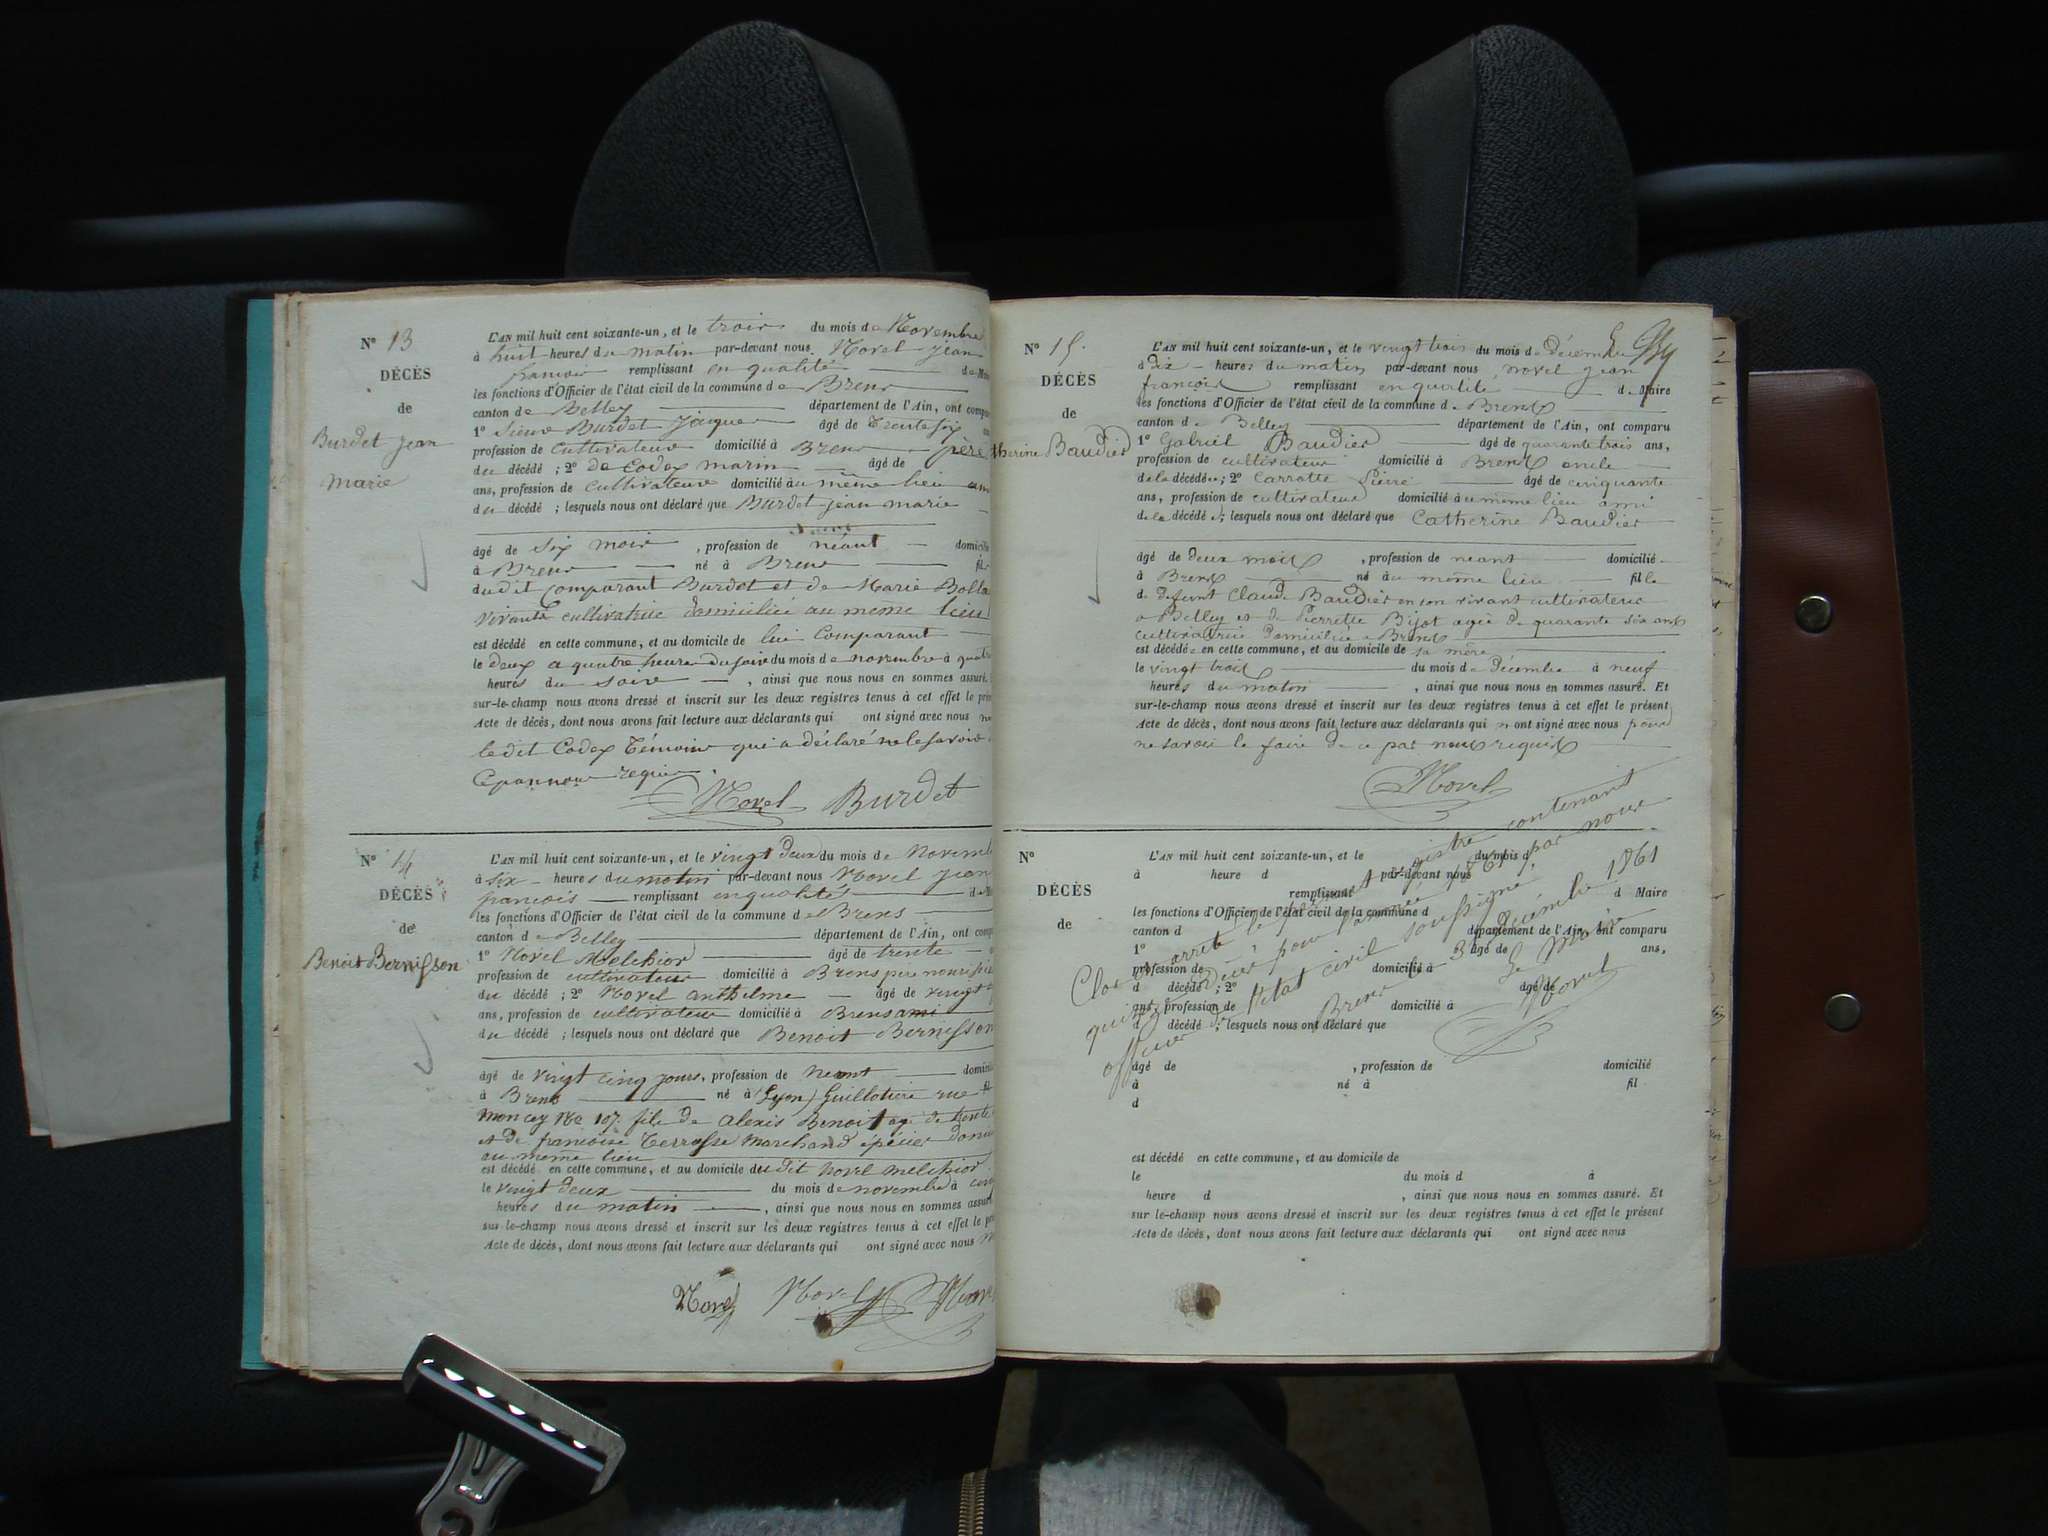 N° 13
DÉCÈS
de
Burdet jean
Marie
L'AN mil huit cent soixante-un, et le trois du mois de Novembre
à huit heures du matin par-devant nous Novel jean
françois remplissant en qualité de Mai
les fonctions d'Officier de l'état civil de la commune de Brens
canton de Belley département de l'Ain, ont compa
1° Sieur Burdet Jacques âgé de Trente six
profession de cultivateur domicilié à Brens père
du décédé ; 2° de Codex marin âgé de
ans, profession de cultivateur domicilié au même lieu ami
du décédé ; lesquels nous ont déclaré que Burdet jean marie
âgé de six mois , profession de néant domicilié
à Brens né à Brens fils
du dit comparant Burdet et de Marie Bolla
vivante cultivatrice domiciliée au même lieu
est décédé en cette commune, et au domicile de lui comparant
le deux a quatre heure du soir du mois de novembre à quatre
heures du soir , ainsi que nous nous en sommes assuré.
sur-le-champ nous avons dressé et inscrit sur les deux registres tenus à cet effet le pré
Acte de décès, dont nous avons fait lecture aux déclarants qui ont signé avec nous
le dit Codex Témoin qui a déclaré ne le savoir
Ce par nous requis.
Novel Burdet
N° 14
DÉCÈS
de
Benoit Bernisson
L'AN mil huit cent soixante-un, et le vingt deux du mois de Novemb
à six heures du matin par-devant nous Novel jean
françois remplissant en qualités de M
les fonctions d'Officier de l'état civil de la commune de Brens
canton de Belley département de l'Ain, ont comp
1° Novel Melchior âgé de trente
profession de cultivateur domicilié à Brens père nourissi
du décédé ; 2° Novel anthelme âgé de vingt
ans, profession de cultivateur domicilié à Brens ami
du décédé ; lesquels nous ont déclaré que Benoit Bernisson
âgé de vingt cinq jours, profession de Neant domicili
à Brens né à Lyon Guillotière rue fil
Moncey No 107. fils de alexis Benoit agé de trente
et de francoise Terrasse Marchand épicier domici
au meme lieu
est décédé en cette commune, et au domicile du dit Novel Melchior
le vingt deux du mois de novembre à cinq
heures du matin , ainsi que nous nous en sommes assuré
sur-le-champ nous avons dressé et inscrit sur les deux registres tenus à cet effet le pré
Acte de décès, dont nous avons fait lecture aux déclarants qui ont signé avec nous
Novel Novel Novel
N° 15.
DÉCÈS
de
therine Baudier
L'AN mil huit cent soixante-un, et le vingt trois du mois de décembre
à dix heures du matin par-devant nous novel jean
françois remplissant en qualité d Maire
les fonctions d'Officier de l'état civil de la commune d Brens
canton de Belley département de l'Ain, ont comparu
1° Gabriel Baudier âgé de quarante trois ans,
profession de cultivateur domicilié à Brens oncle
de la décédée ; 2° Carrotte Pierre âgé de cinquante
ans, profession de cultivateur domicilié au même lieu ami
de la décédée ; lesquels nous ont déclaré que Catherine Baudier
âgé de deux mois , profession de neant domicilié
à Brens né au même lieu fille
de defeunt Claude Baudier en son vivant cultivateur
a Belley et de Pierrette Bijot agée de quarante six ans
cultivatrice domiciliée a Brens
est décédée en cette commune, et au domicile de sa mère
le vingt trois du mois de décembre à neuf
heures du matin , ainsi que nous nous en sommes assuré. Et
sur-le-champ nous avons dressé et inscrit sur les deux registres tenus à cet effet le présent
Acte de décès, dont nous avons fait lecture aux déclarants qui n ont signé avec nous pour
ne savoir le faire de ce par nous requis
Novel
N°
DÉCÈS
de
L'AN mil huit cent soixante-un, et le du mois d
à heure d par-devant nous
remplissant d Maire
les fonctions d'Officier de l'état civil de la commune d
canton d département de l'Ain, ont comparu
1° âgé de ans,
profession de domicilié à
d décédé ; 2° âgé de
ans, profession de domicilié à
d décédé ; lesquels nous ont déclaré que
Clos et arreté le présent registre contenant
quinze décès pour l'année 1861 par nous
officier de l'état civil soussigné,
Brens le 31 décembre 1861
Le Maire
Novel
âgé de , profession de domicilié
à né à fil
d
est décédé en cette commune, et au domicile de
le du mois d à
heure d , ainsi que nous nous en sommes assuré. Et
sur-le-champ nous avons dressé et inscrit sur les deux registres tenus à cet effet le présent
Acte de décès, dont nous avons fait lecture aux déclarants qui ont signé avec nous